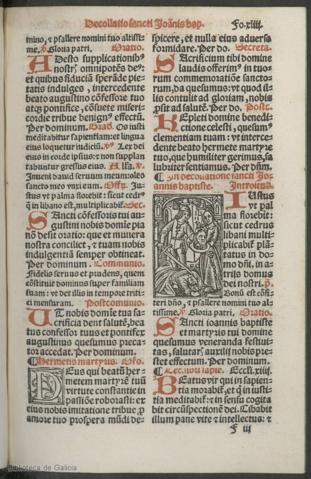 Decollatio sancti Joānis bap. Fo.xliij.
mino, ⁊ psallere nomini tuo altissi
me. ℣. Gloria patri. Oratio.
ADesto supplicationib⁹
nostr omnipotēs de⁹: et
et quibus fiduciā sperādę pie
tatis indulges, intercedente
beato augustino cōfessore tuo
atq; pontifice, cōsuete miseri
cordie tribue benign⁹ effectū.
Per dominum. Os iusti
meditabitur sapientiam: et lingua
eius loquetur iudiciū. ℣. Lex dei
eius in corde ipsius: ⁊ non supplan
tabuntur gressus eius. Alla. ℣.
Jnueni dauid seruum meum: oleo
sancto meo vnxi eum. Offꝫ. Ju
stus vt palma florebit: sicut cedr⁹
q̄ in libano est, multiplicabit̄. Sec.
SAncti cōfessoris tui au
gustini nobis domīe pia
nō desit oratio: que et munera
nostra conciliet, ⁊ tuam nobis
indulgentiā semper obtineat.
Per dominum. Communio.
Fidelis seruus et prudens, quem
cōstituit dominus super familiam
suam: vt det illis in tempore triti
ci mensuram. Postcommunio.
UT nobis domīe tua sa
crificia dent salutē, bea
tus confessor tuus et pontifex
augustinus quesumus preca
tor accedat. Per dominum.
Hermetis martyris. Oro.
DEus qui beatū her
metem martyrē tuū
virtute constantie in
passiōe roborasti: ex
eius nobis imitatione tribue p̄
amore tuo prospera mūdi de-
spicere, et nulla eius aduersa
formidare. Per do. Secreta.
SAcrificium tibi domine
laudis offerim⁹ in tuoꝝ
mm commemoratiōe sancto-
rum, da quesumus: vt quod il-
lis contulit ad gloriam, nobis
psit ad salutē. Per do. Postc.
REpleti domine benedi-
ctione celesti, quesum⁹
clementiam tuam: vt interce-
dente beato hermete martyre
tuo, que humiliter gerimus, sa
lubriter sentiamus. Per dn̄m.
In decollatione sancti Jo-
annis baptiste. Introitus.
JUstus
vt pal
ma florebit:
sicut cedrus
libani multi
plicabit̄ plā
tatus in do-
mo dn̄i, in a-
trijs domus
dei nostri. p̄.
Bonū est cōfi-
teri dn̄o, ⁊ psallere nomini tuo al-
tissime. ℣. Gloria patri. Oratio.
SAncti ioannis baptiste
et martyris tui domine
quesumus veneranda festiui-
tas, salutar⁹ auxilij nobis pre-
stet effectum. Per dominum.
Lec. libri sapie. Eccli. xiiij.
BEatus vir qui in sapien-
tia morabit̄, et q̄ in iustī
tia meditabit̄: ⁊ in sensu cogita
bit circūspectionē dei. Cibabit
illum pane vite ⁊ intellectus: ⁊
f iij
Biblioteca de Galicia